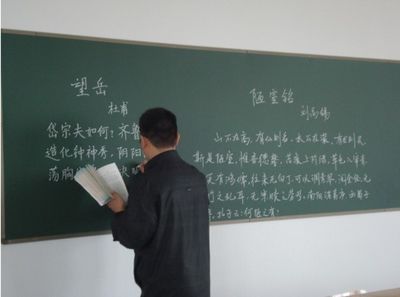 望岳
杜甫
岱宗夫如何?齐鲁
造化钟神秀,阴阳
荡胸 决
陋室铭
刘禹锡
山不在高,有仙则名,水不在深,有龙则灵
斯是陋室,惟吾德馨,苔痕上阶绿,草色入帘青
笑有鸿儒,往来无白丁,可以调素琴,阅金经,无
竹之乱耳,无案牍之劳形,南阳诸葛庐,西蜀子
孔子云:何陋之有?